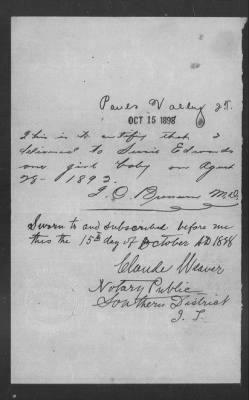 Pauls Valley I.T.
OCT 15 1898
This is to certify that I
delivered to Susie Edwards
one girl baby on Agust
28 - 1892.
J. O. M.D.
Sworn to and subscribed before me
this the 15th day of October AD 1898
Claude Weaver
Notary Public
Southern District
I. T.